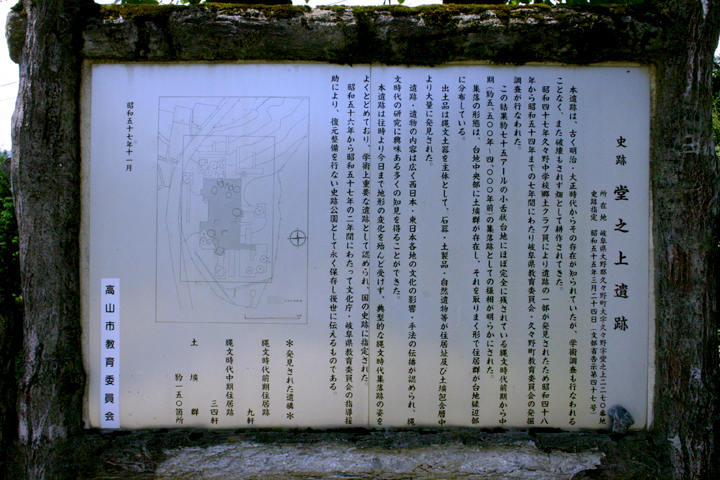 史跡 堂之上遺跡
所在地 岐阜県大野郡久々野町大字久々野字堂之上二二七〇番地
史跡指定 昭和五十五年三月二十四日(文部省告示第四十七号)
本遺跡は、古く明治・大正時代からその存在が知られていたが、学術調査も行なわれる
ことなく、また破壊もされず畑として耕作されてきた。
昭和四十七年久々野中学校郷土クラブ員により遺跡の一部が発見されたため昭和四十八
年から昭和五十四年までの七年間にわたり岐阜県教育委員会・久々野町教育委員会の発掘
調査が行なわれた。
この結果約七十五アールの小舌状台地にほぼ完全に残されている縄文時代前期から中
期(約五、五〇〇年〜四、〇〇〇年前)の集落跡としての様相が明らかにされた。
集落の形態は、台地中央部に土壙群が存在し、それを取りまく形で住居群が台地縁辺部
に分布している。
出土品は縄文土器を主体として、石器・土製品・自然遺物等が住居址及び土壙包含層中
より大量に発見された。
遺跡・遺物の内容は広く西日本・東日本各地の文化の影響・手法の伝播が認められ、縄
文時代の研究に興味ある多くの知見を得ることができた。
本遺跡は往時より今日まで地形の変化を殆んど受けず、典型的な縄文時代集落跡の姿を
よくとどめており、学術上重要な遺跡として認められ、国の史跡に指定された。
昭和五十六年から昭和五十七年の二年間にわたって文化庁・岐阜県教育委員会の指導援
助により、復元整備を行ない史跡公園として永く保存し後世に伝えるものである。
＊発見された遺構＊
縄文時代前期住居跡 九軒
縄文時代中期住居跡 三四軒
土壙群 約一五〇箇所
昭和五十七年十一月
高山市教育委員会